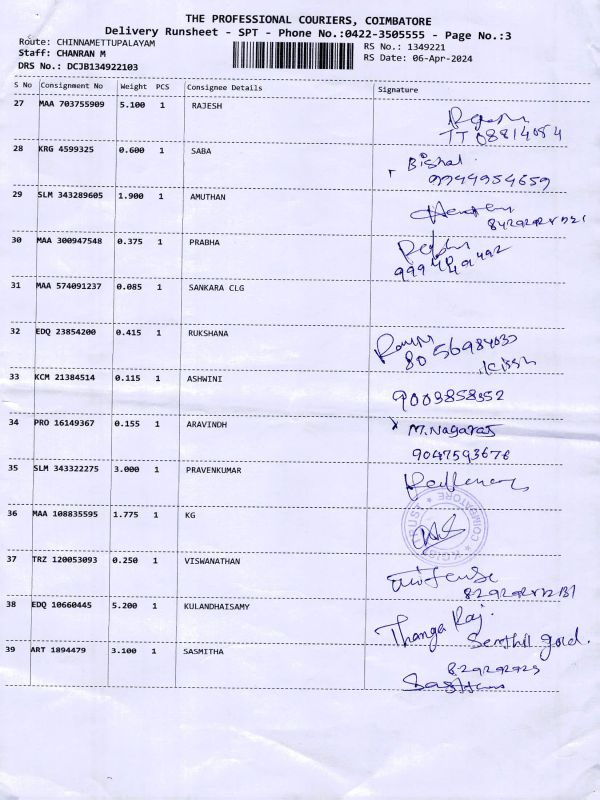 THE PROFESSIONAL COURIERS, COIMBATORE
Delivery Runsheet - SPT - Phone No.:0422-3505555 - Page No.:3
Route: CHINNAMETTUPALAYAM
RS No.: 1349221
Staff: CHANRAN M
RS Date: 06-Apr-2024
DRS No.: DCJB134922103
S No Consignment No Weight PCS Consignee Details Signature
27 MAA 703755909 5.100 1 RAJESH
28 KRG 4599325 0.600 1 SABA Bishal
9944954659
29 SLM 343289605 1.900 1 AMUTHAN
30 MAA 300947548 0.375 1 PRABHA
31 MAA 574091237 0.085 1 SANKARA CLG
32 EDQ 23854200 0.415 1 RUKSHANA
33 KCM 21384514 0.115 1 ASHWINI 9003858352
34 PRO 16149367 0.155 1 ARAVINDH M.Nagaraj
9047593676
35 SLM 343322275 3.000 1 PRAVENKUMAR
36 MAA 108835595 1.775 1 KG
COIMBATORE
37 TRZ 120053093 0.250 1 VISWANATHAN
38 EDQ 10660445 5.200 1 KULANDHAISAMY Thanga Raj.
Senthil gold.
39 ART 1894479 3.100 1 SASMITHA